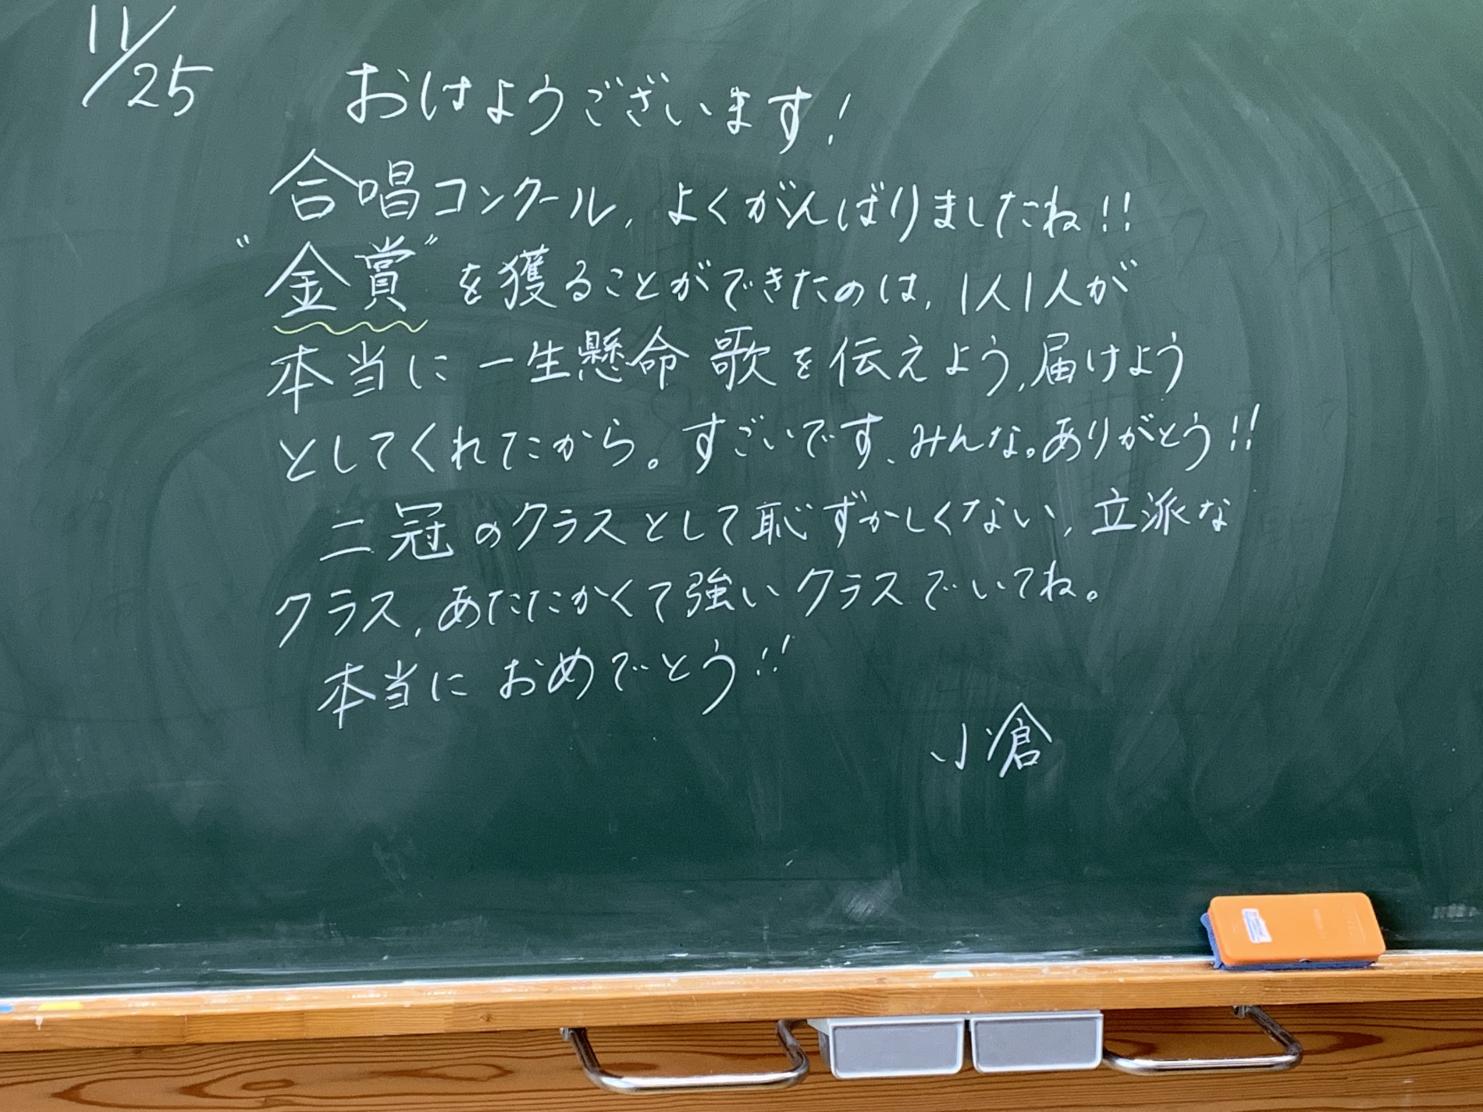 11/25
おはようございます!
合唱コンクール, よくがんばりましたね!!
"金賞"を獲ることができたのは, 1人1人が
本当に一生懸命歌を伝えよう, 届けよう
としてくれてたから。すごいです、みんな。ありがとう!!
二冠のクラスとして恥ずかしくない, 立派な
クラス, あたたかくて強いクラスでいてね。
本当におめでとう!!
小倉